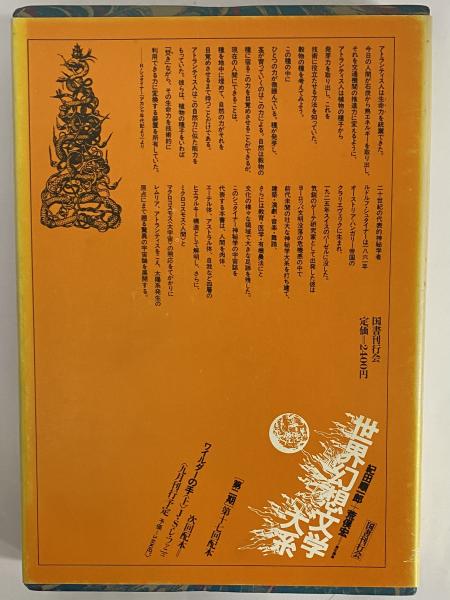 アトランティス人は生命力を統御できた。
今日の人間が石炭から熱エネルギーを取り出し、
それを交通機関の推進力に変えるように、
アトランティス人は植物の種子から
発芽力を取り出し、これを
技術に役立たせる方法を知っていた。
穀物の種を考えてみよう。
この種の中に
ひとつの力が微睡んでいる。種が発芽し、
茎が育っていくのはこの力による。自然は穀物の
種に宿るこの力を目覚めさせることができるが、
現在の人間にできることは、
種を地中に埋めて、自然の力がそれを
目覚めさせるまで待つことだけである。
アトランティス人はこの自然力に似た能力を
もっていた。彼らは、植物の種子をいわば
【焚き】ながら、その生命力を技術的に
利用できる力に変換する装置を所有していた。
——R・シュタイナー『アカシャ年代記より』より
二十世紀の代表的神秘学者
ルドルフ・シュタイナーは一八六一年
オーストリア・ハンガリー帝国の
クラリエヴィックに生まれ、
一九二五年スイスのバーゼルに没した。
気鋭のゲーテ研究家として出発した彼は
ヨーロッパ文明没落の危機感の中で
前代未聞の壮大な神秘学大系を打ち建て、
建築・演劇・音楽・舞踏、
さらには教育・医学・有機農法にと
文化の様々な領域で大きな足跡を残した。
このシュタイナー神秘学の宇宙誌を
代表する本書は、人間を肉体、
エーテル体、アストラル体、自我など四層の
ヒエラルキーを通じて解明し、さらに、
ミクロコスモス(人間)と
マクロコスモス(大宇宙)の照応をてがかりに
レムリア、アトランティスをこえ、太陽系発生の
原点にまで遡る驚異の宇宙論を展開する。
国書刊行会
定価—2400円
国書刊行会
紀田順一郎 荒俣宏
世界幻想文学大系
[第二期]第十七回配本
次回配本
ワイルダーの手(上) J・S・レ・ファニュ